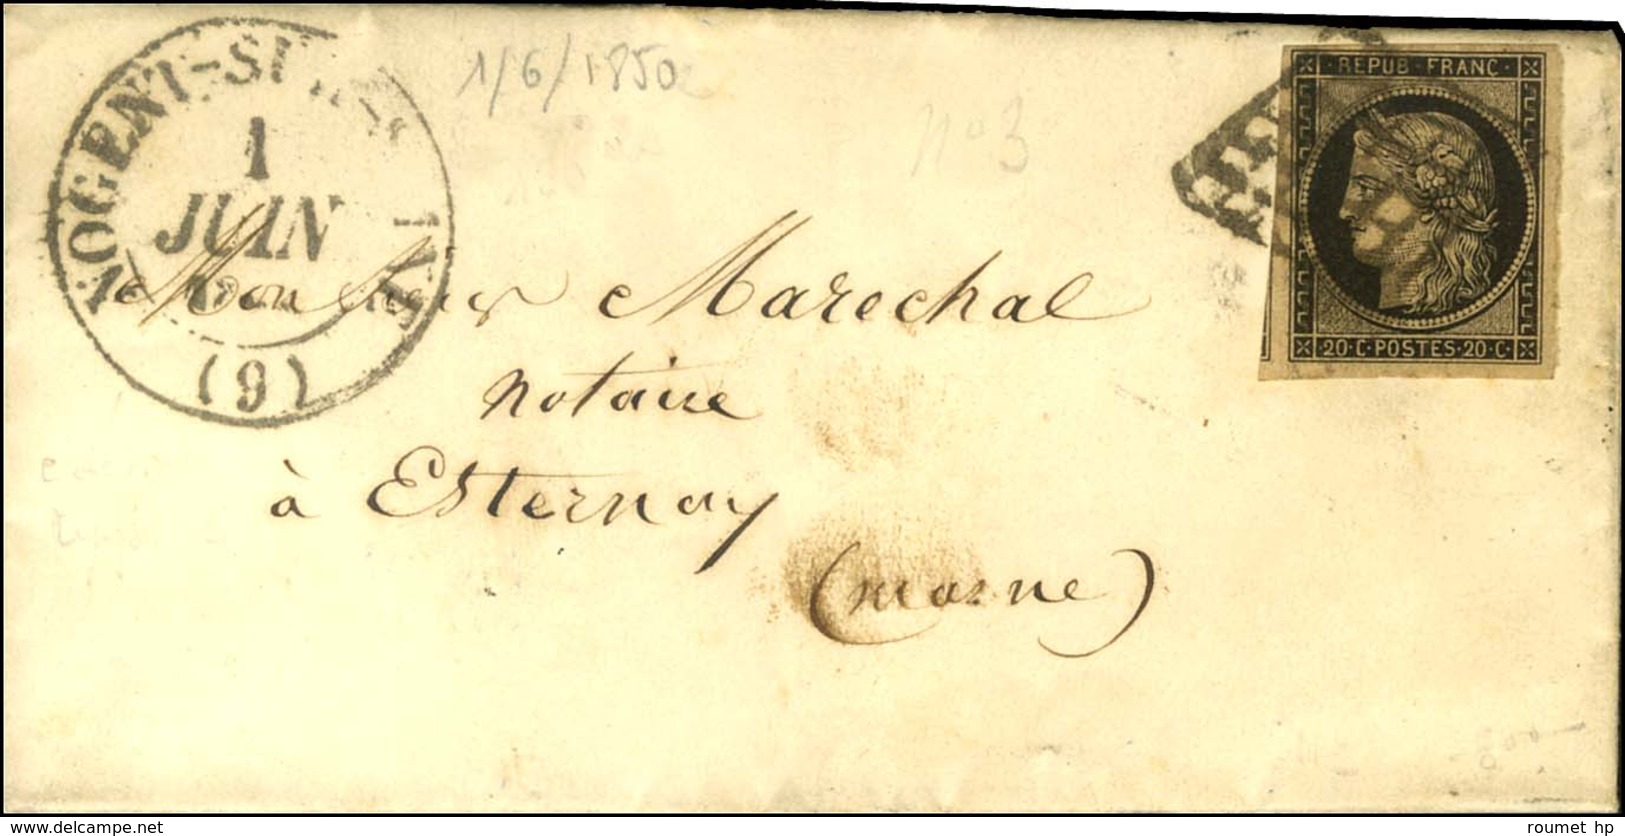 NOGENT-SUR-
1
JUIN
(9)
1/6/1850
n° 3
REPUB·FRANC·
20·C·POSTES·20·C·
Monsieur Marechal
notaire
à Esternay
(marne)
© delcampe.net
roumet hp